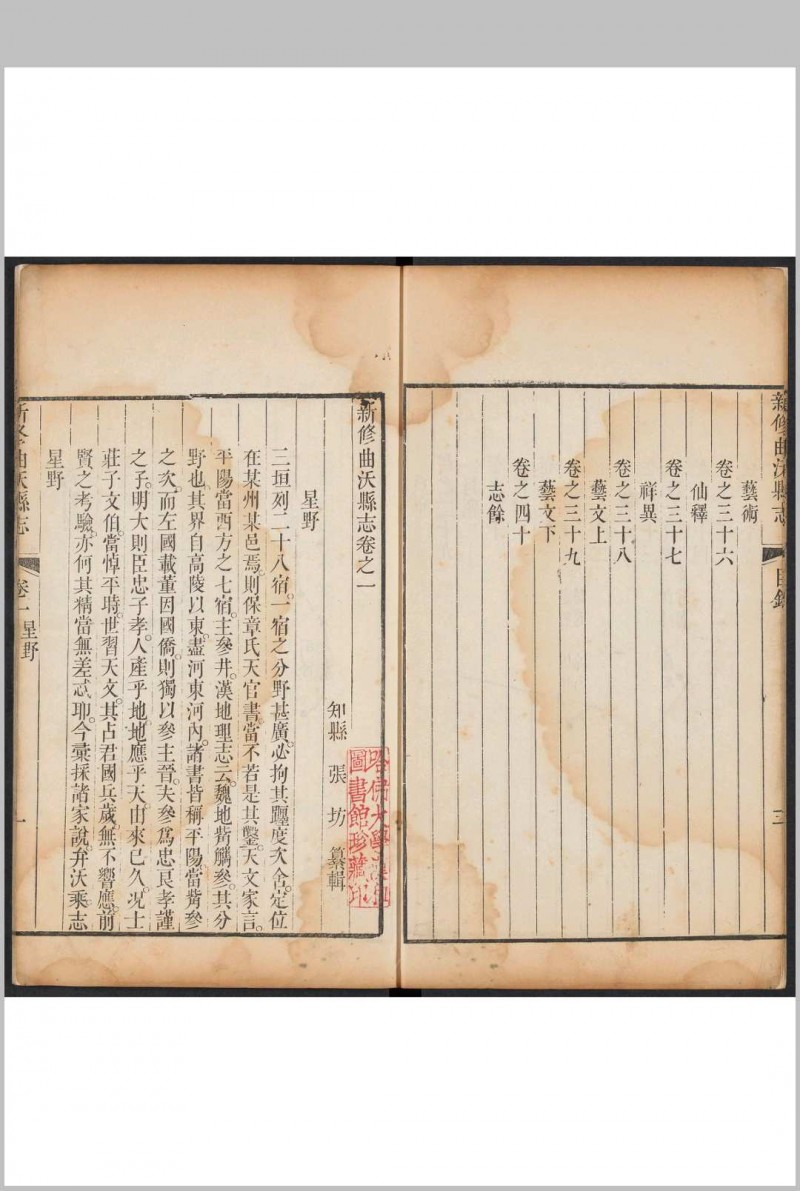 新修曲沃縣志
目錄
三
藝術
卷之三十六
仙釋
卷之三十七
祥異
卷之三十八
藝文上
卷之三十九
藝文下
卷之四十
志餘
新修曲沃縣志卷之一
知縣 張坊 纂輯
星野
三垣列二十八宿。一宿之分野甚廣。必拘其躔度次舍。定位
在某州某邑焉。則保章氏天官書。當不若是其鑿。天文家言。
平陽當西方之七宿。主參井。漢地理志云。魏地觜觿參。其分
野也。其界自高陵以東。盡河東河內。諸書皆稱平陽。當觜參
之次。而左國載董因國僑。則獨以參主晉。夫參爲忠良孝謹
之子。明大則臣忠子孝。人產乎地。地應乎天。由來已久。况士
莊子文伯。當悼平時。世習天文。其占君國兵歲。無不響應。前
賢之考驗。亦何其精當無差忒耶。今彙採諸家說。弁沃乘志
星野
新修曲沃縣志
卷一 星野
一
哈佛大學
圖書館珍藏印